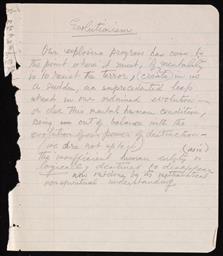 Evolutionism
Our explosive progress has come to
the point where it must, if mentality
is to the terror, (create) in us
a sudden, an unprecedented leap
ahead in our ordained evolution —
or else this mental human condition,
being in out of balance with the
evolution of our power of destruction —
(we are not up to it)
(will)
the insufficient human entity is
logically destined to disappear
now by its
nonspiritual understanding